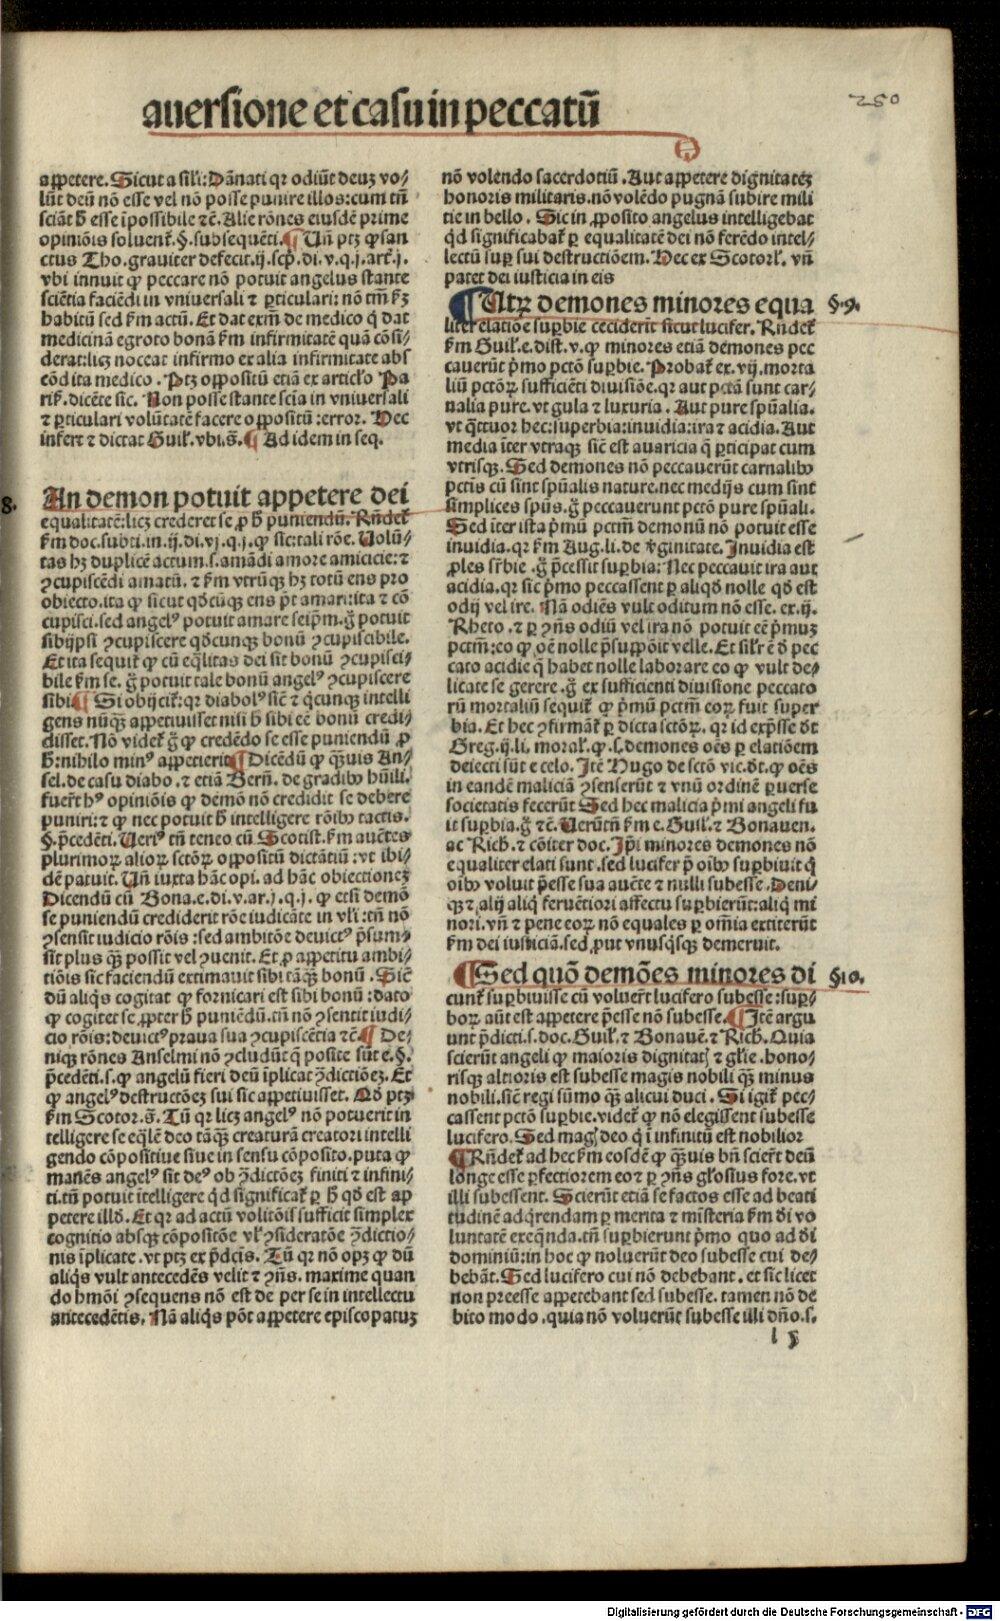 auersione et casu in peccatū
250
appetere. Sicut a sili: Dānati qꝛ odiūt deuꝫ vo/
lūt deū nō esse vel nō posse punire illos: cum tn̄
sciāt h̄ esse īpossibile ⁊c̄. Alie rōnes eiusdē prime
opiniōis soluent᷑. §. subsequēti. ¶ Un̄ ptꝫ ꝙ san
ctus Tho. grauiter defecit. ij. scp̄. di. v. q. j. art. j.
vbi innuit ꝙ peccare nō potuit angelus stante
sciētia faciēdi in vniuersali ⁊ ꝑticulari: nō tm̄ ẜm
habitū sed ẜm actū. Et dat exm̄ de medico q̇ dat
medicinā egroto bonā ẜm infirmitatē quā cōsi/
derat: licꝫ noceat infirmo ex alia infirmitate abs
cōd ita medico. Ptꝫ oppositū etiā ex articło Pa
riẜ. dicēte sic. Non posse stante scīa in vniuersali
⁊ ꝑticulari volūtatē facere oppositū: error. Hec
infert ⁊ dictat Guił. vbi. s̄. ¶ Ad idem in seq.
8.
An demon potuit appetere dei
equalitatē: licꝫ crederet se ꝓ h̄ puniendū. Rn̄det᷑
ẜm doc. subti. in. ij. di. vj. q. j. ꝙ sic: tali rōe. Uolū/
tas hꝫ duplicē actum. s. amādi amore amicicie: ⁊
ꝯcupiscēdi amatū. ⁊ ẜm vtrūqꝫ hꝫ totū ens pro
obiecto. ita ꝙ sicut qd̄cūqꝫ ens p̄t amari: ita ⁊ cō
cupisci. sed angelꝰ potuit amare seip̄m. g̊ potuit
sibijpsi ꝯcupiscere qd̄cunqꝫ bonū ꝯcupiscibile.
Et ita sequit᷑ ꝙ cū eq̄litas dei sit bonū ꝯcupisci/
bile ẜm se. g̊ potuit tale bonū angelꝰ ꝯcupiscere
sibi. ¶ Si obijcit᷑: qꝛ diabolꝰ sic̄ ⁊ q̇cunqꝫ intelli
gens nūq̄ꝫ appetiuisset nisi h̄ sibi eē bonū credi/
disset. Nō videt᷑ g̊ ꝙ credēdo se esse puniendū ꝓ
h̄: nihilo minꝰ appetierit ¶ Dicēdū ꝙ q̄ꝫuis An/
sel. de casu diabo. ⁊ etiā Bern̄. de gradibꝰ hūili.
fuer̄t hꝰ opiniōis ꝙ demō nō credidit se debere
puniri: ⁊ ꝙ nec potuit h̄ intelligere rōibꝰ tactis.
§. p̄cedēti. Ueriꝰ tn̄ teneo cū Scotist. ẜm auc̄tes
plurimoꝝ alioꝝ sctōꝝ oppositū dictātiū: vt ibi/
dē patuit. Un̄ iuxta hāc opi. ad hāc obiectioneꝫ
Dicendū cū Bona. e. di. v. ar. j. q. j. ꝙ etsi demō
se puniendū crediderit rōe iudicāte in vl̄i: tn̄ nō
ꝯsensit iudicio rōis: sed ambitōe deuictꝰ p̄sum/
sit plus q̄ꝫ possit vel ꝯuenit. Et ꝓ appetitu ambi/
tiōis sic faciendū extimauit sibi tāq̄ꝫ bonū. Sic̄
dū aliq̇s cogitat ꝙ fornicari est sibi bonū: dato
ꝙ cogitet se ꝓpter h̄ puniēdū. tn̄ nō ꝯsentit iudi/
cio rōis: deuictꝰ praua sua ꝯcupiscētia ⁊c̄. ¶ De/
niqꝫ rōnes Anselmi nō ꝯcludūt q̄ posite sūt e. §.
p̄cedēti. s. ꝙ angelū fieri deū īplicat ꝯ̄dictiōeꝫ. Et
ꝙ angelꝰ destructōeꝫ sui sic appetiuisset. Qd̄ ptꝫ
ẜm Scotor. s̄. Tū qꝛ licꝫ angelꝰ nō potuerit in
telligere se eq̄lē deo tāq̄ꝫ creaturā creatori intelli
gendo cōpositiue siue in sensu cōposito. puta ꝙ
manēs angelꝰ sit deꝰ ob ꝯ̄dictōeꝫ finiti ⁊ infini/
ti. tn̄ potuit ītelligere q̇d significat᷑ ꝑ h̄ qd̄ est ap
petere illd̄. Et qꝛ ad actū volitōis sufficit simplex
cognitio absqꝫ cōpositōe vł ꝯsideratōe ꝯ̄dictio/
nis īplicate. vt ptꝫ ex p̄dcīs. Tū qꝛ nō opꝫ ꝙ dū
aliq̇s vult antecedēs velit ⁊ ꝯn̄s. maxime quan
do hmōi ꝯsequens nō est de per se in intellectu
antecedētis. Nā aliq̇s pōt appetere episcopatuꝫ
nō volendo sacerdotiū. Aut appetere dignitatēꝫ
honoris militaris. nō volēdo pugnā subire mili
tie in bello. Sic in ꝓposito angelus intelligebat
q̇d significabat᷑ ꝑ equalitatē dei nō ferēdo intel/
lectū suꝑ sui destructiōem. Hec ex Scotorł. vn̄
patet dei iusticia in eis
¶ Utꝝ demones minores equa §. 9.
liter elatiōe suꝑbie ceciderīt sicut lucifer. Rn̄det᷑
ẜm Guił. e. dist. v. ꝙ minores etiā demones pec
cauerūt p̄mo pctō suꝑbie. Probat᷑ ex. vij. morta
liū pctōꝝ sufficiēti diuisiōe. qꝛ aut pctā sunt car/
nalia pure. vt gula ⁊ luxuria. Aut pure spūalia.
vt q̄ttuor hec: superbia: inuidia: ira ⁊ acidia. Aut
media īter vtraqꝫ sic̄ est auaricia q̄ ꝑticipat cum
vtrisqꝫ. Sed demones nō peccauerūt carnalibꝰ
pctīs cū sint spūalis nature. nec medijs cum sint
simplices spūs. g̊ peccauerunt pctō pure spūali.
Sed īter ista p̄mū pctm̄ demonū nō potuit esse
inuidia. qꝛ ẜm Aug. li. de v̇ginitate. Inuidia est
ꝓles suꝑbie. g̊ p̄cessit suꝑbia: Nec peccauit ira aut
acidia. qꝛ sic p̄mo peccassent ꝑ aliqd̄ nolle qd̄ est
odij vel ire. Nā odiēs vult oditum nō esse. ex. ij.
Rheto. ⁊ ꝑ ꝯn̄s odiū vel ira nō potuit eē p̄muꝫ
pctm̄: eo ꝙ oē nolle p̄suppōit velle. Et silr̄ ē d̄ pec
cato acidie q̄ habet nolle laborare eo ꝙ vult de/
licate se gerere. g̊ ex sufficienti diuisione peccato
rū mortaliū sequit᷑ ꝙ p̄mū pctm̄ eoꝝ fuit super
bia. Et hec ꝯfirmāt᷑ ꝑ dicta sctōꝝ. qꝛ id exp̄sse dt̄
Greg. ij. li. morał. ꝙ. s. demones oēs ꝑ elatiōem
deiecti sūt e celo. Itē Hugo de sctō vic. dt̄. ꝙ oēs
in eandē maliciā ꝯsenserūt ⁊ vnū ordinē ꝑuerse
societatis fecerūt Sed hec malicia p̄mi angeli fu
it suꝑbia. g̊ ⁊c̄. Uerūtn̄ ẜm e. Guił. ⁊ Bonauen.
ac Rich. ⁊ cōiter doc. Ip̄i minores demones nō
equaliter elati sunt. sed lucifer p̄ oībꝰ suꝑbiuit q̇
oībꝰ voluit p̄esse sua auc̄te ⁊ nulli subesse. Deni/
qꝫ ⁊ alij aliq̇ feruētiori affectu suꝑbierūt: aliq̇ mi
nori. vn̄ ⁊ pene eoꝝ nō equales ꝑ om̄ia extiterūt
ẜm dei iusticiā. sed ꝓut vnusq̇sqꝫ demeruit.
¶ Sed quō demōes minores di §10.
cunt᷑ suꝑbiuisse cū voluer̄t lucifero subesse: suꝑ/
boꝝ aūt est appetere p̄esse nō subesse. ¶ Itē argu
unt p̄dicti. s. doc. Guił. ⁊ Bonauē. ⁊ Rich. Quia
scierūt angeli ꝙ maioris dignitatꝭ ⁊ głie. hono/
risqꝫ altioris est subesse magis nobili q̄ꝫ minus
nobili. sic̄ regi sūmo q̄ꝫ alicui duci. Si igit᷑ pec/
cassent pctō suꝑbie. videt᷑ ꝙ nō elegissent subesse
lucifero. Sed magꝭ deo q̇ ī infinitū est nobilior
¶ Rn̄det᷑ ad hec ẜm eosdē ꝙ q̄ꝫuis bn̄ scier̄t deū
longe esse ꝑfectiorem eoꝝ ⁊ ꝑ ꝯn̄s głosius fore. vt
illi subessent. Scierūt etiā se factos esse ad beati
tudinē adq̇rendam ꝑ merita ⁊ mīsteria ẜm d̄i vo
luntatē exeq̄nda. tn̄ suꝑbierunt p̄mo quo ad d̄i
dominiū: in hoc ꝙ noluerūt deo subesse cui de/
bebāt. Sed lucifero cui nō debebant. et sic licet
non preesse appetebant sed subesse. tamen nō de
bito modo. quia nō voluerūt subesse illi dn̄o. s.
l 5
Digitalisierung gefördert durch die Deutsche Forschungsgemeinschaft - DFG